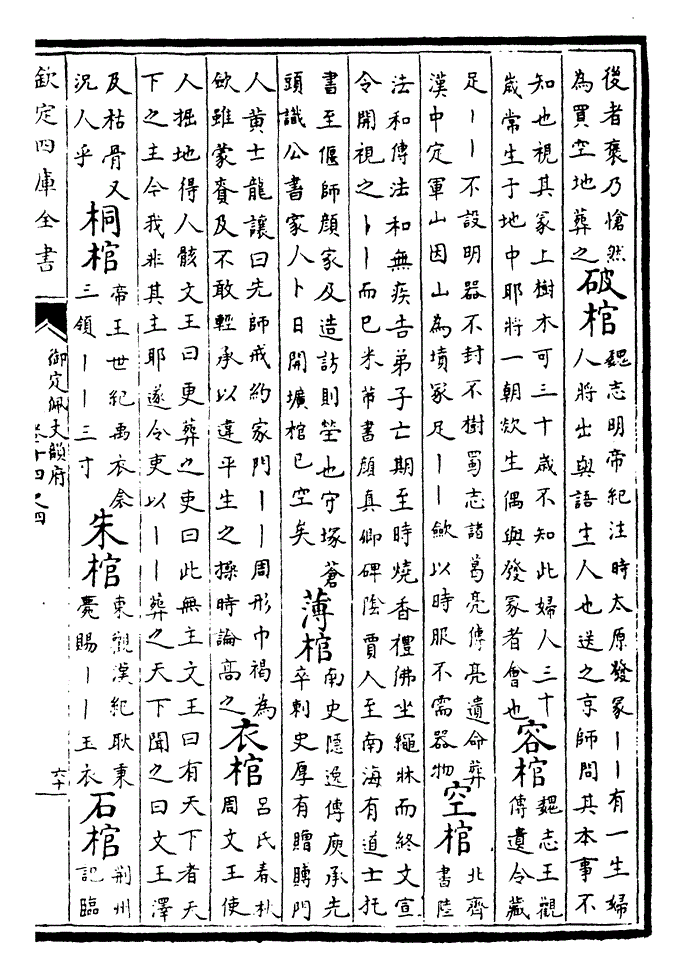 後者襃乃愴然
為買空地葬之
破棺
魏志明帝紀注時太原發冢丨丨有一生婦
人將出與語生人也送之京師問其本事不
知也視其冢上樹木可三十歲不知此婦人三十
歲常生于地中耶將一朝欻生偶與發冢者會也
容棺
魏志王觀
傳遺令藏
足丨丨不設明器不封不樹蜀志諸葛亮傳亮遺命葬
漢中定軍山因山為墳冢足丨丨斂以時服不需器物
空棺
北齊
書陸
法和傳法和無疾告弟子亡期至時燒香禮佛坐繩牀而終文宣
令開視之丨丨而已米芾書顔真卿碑隂賈人至南海有道士托
書至偃師顔家及造訪則塋也守塚蒼
頭識公書家人卜日開壙棺已空矣
薄棺
南史隱逸傳庾承先
卒刺史厚有贈賻門
人黄士龍讓曰先師戒約家門丨丨周形巾褐為
斂雖蒙賚及不敢輕承以違平生之操時論高之
衣棺
吕氏春秋
周文王使
人掘地得人骸文王曰更葬之吏曰此無主文王曰有天下者天
下之主今我非其主耶遂令吏以丨丨葬之天下聞之曰文王澤
及枯骨又
況人乎
桐棺
帝王世紀禹衣衾
三領丨丨三寸
朱棺
東觀漢紀耿秉
薨賜丨丨玉衣
石棺
荆州
記臨
欽定四庫全書
御定佩文韻府
卷十四之四